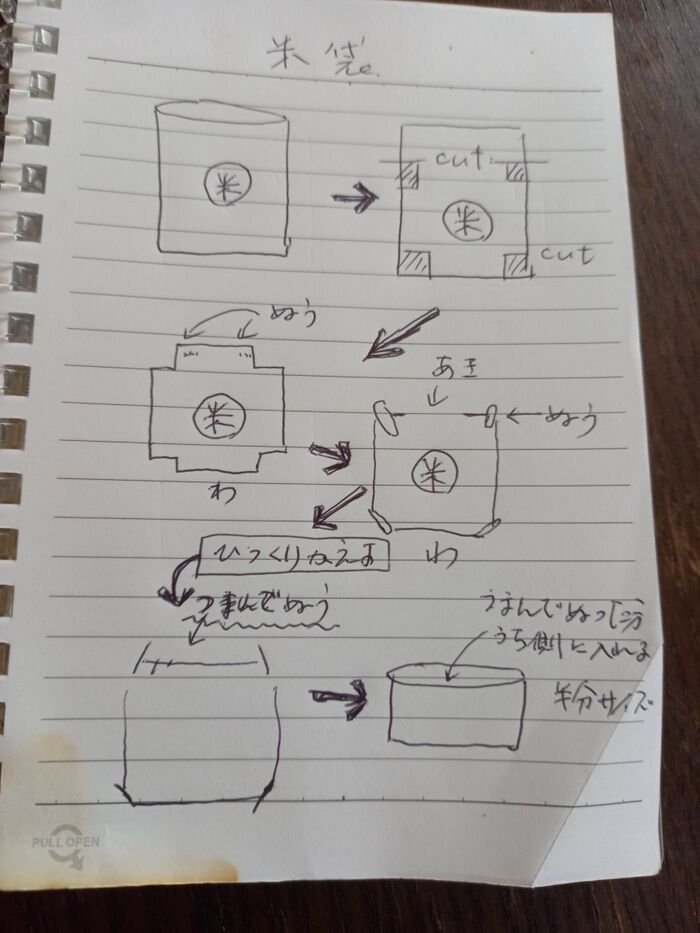 米袋
米
cut
米
cut
ぬう
米
わ
あき
ぬう
米
わ
ひっくりかえす
つまんでぬう
つまんでぬった分
うち側に入れる
半分サイズ
PULL OPEN